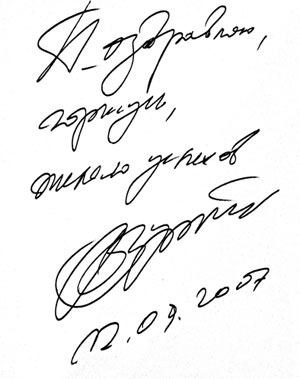 Поздравляю,
горжусь,
желаю успехов
12.09.2007